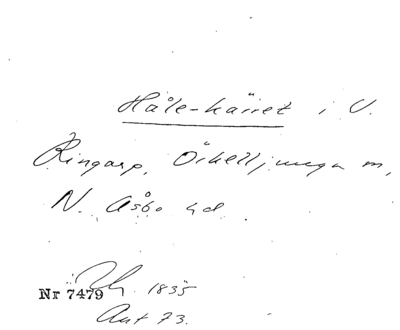 Håle-kärret i V.
Ringarp, Örkelljunga m,
N. Åsbo hd.
1835
Nr 7479
Akt 73.